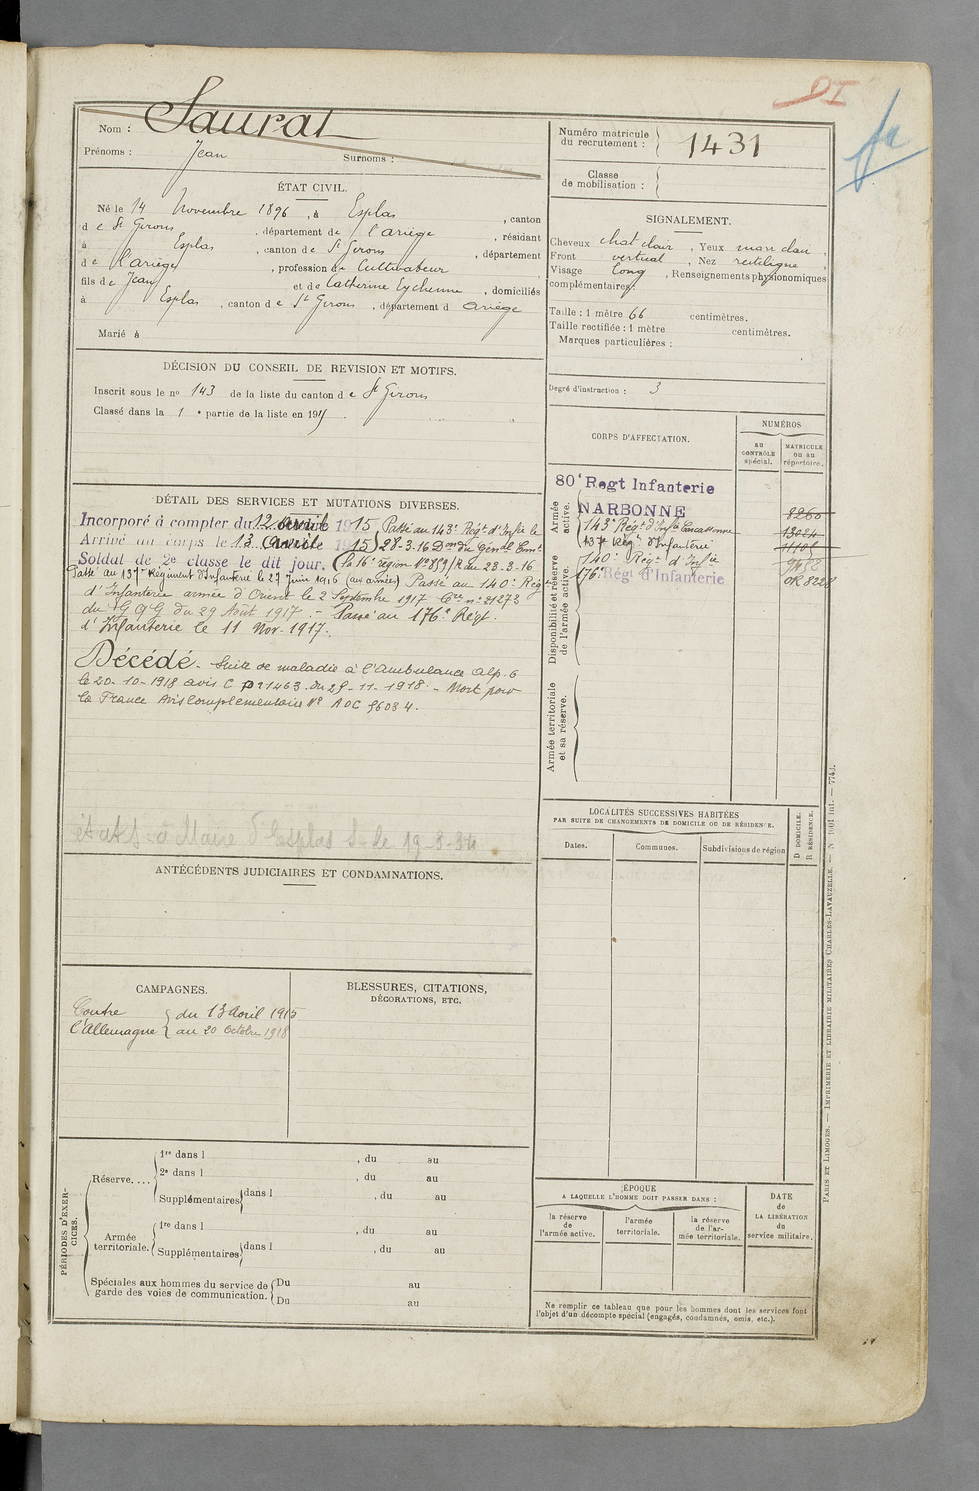 DI
Nom : Saurat
Prénoms : Jean Surnoms :
ÉTAT CIVIL.
Né le 14 Novembre 1896, à Esplas, canton
de St Girons, département de l'ariège, résidant
à Esplas, canton de St Girons, département
de l'ariège, profession de Cultivateur,
fils de Jean et de Catherine Eychenne, domiciliés
à Esplas, canton de St Girons, département d Ariège
Marié à
DÉCISION DU CONSEIL DE REVISION ET MOTIFS.
Inscrit sous le no 143 de la liste du canton de St Girons
Classé dans la 1e partie de la liste en 191
DÉTAIL DES SERVICES ET MUTATIONS DIVERSES.
Incorporé à compter du 12 avril 1915 Passé au 143e Régt d'Infie le
Arrivé au corps le 13 avril 1915 28-3-16 Don du Génal Comt
Soldat de 2e classe le dit jour. la 16e région No 859/R du 23-3-16
Passé au 137e Régiment d'Infanterie le 27 Juin 1916 (aux armées) Passé au 140e Régt
d'Infanterie armée d'Orient le 2 Septembre 1917. Cre no 21273
du GQG du 29 Août 1917. - Passé au 176e Régt.
d'Infanterie le 11 Nov. 1917.
Décédé - Suite de maladie à l'Ambulance Alp. 6
le 20-10-1918 avis C P 21463 du 25-11-1918. - Mort pour
la France Avis Complémentaire No A OC 96034.
à Maire d'Esplas S. le 19-3-34
ANTÉCÉDENTS JUDICIAIRES ET CONDAMNATIONS.
CAMPAGNES.
Contre du 13 Avril 1915
l'Allemagne au 20 Octobre 1918
BLESSURES, CITATIONS,
DÉCORATIONS, ETC.
PÉRIODES D'EXER-
CICES.
Réserve....
1re dans l , du au
2e dans l , du au
Supplémentaires dans l , du au
Armée
territoriale.
1re dans l , du au
Supplémentaires dans l , du au
Spéciales aux hommes du service de
garde des voies de communication.
Du au
Du au
Numéro matricule
du recrutement : 1431
Classe
de mobilisation :
SIGNALEMENT.
Cheveux chat clair, Yeux mar clair,
Front vertical, Nez rectiligne,
Visage long, Renseignements physionomiques
complémentaires:
Taille : 1 mètre 66 centimètres.
Taille rectifiée : 1 mètre centimètres.
Marques particulières :
Degré d'instruction : 3
CORPS D'AFFECTATION.
NUMÉROS
au
CONTRÔLE
spécial.
MATRICULE
ou au
répertoire.
Armée
active.
80e Régt Infanterie
NARBONNE 8260
143e Régt d'Infie Carcassonne 13024
137e Régt d'Infanterie 11105
140e Régt d'Infie
176e Régt d'Infanterie OR 8228
Disponibilité et réserve
de l'armée active.
Armée territoriale
et sa réserve.
LOCALITÉS SUCCESSIVES HABITÉES
PAR SUITE DE CHANGEMENTS DE DOMICILE OU DE RÉSIDENCE.
Dates. Communes. Subdivisions de région
D DOMICILE.
R RÉSIDENCE.
ÉPOQUE
A LAQUELLE L'HOMME DOIT PASSER DANS :
la réserve
de
l'armée active.
l'armée
territoriale.
la réserve
de l'ar-
mée territoriale.
DATE
de
LA LIBÉRATION
du
service militaire.
Ne remplir ce tableau que pour les hommes dont les services font
l'objet d'un décompte spécial (engagés, condamnés, omis, etc.).
PARIS ET LIMOGES. — IMPRIMERIE ET LIBRAIRIE MILITAIRES CHARLES-LAVAUZELLE.